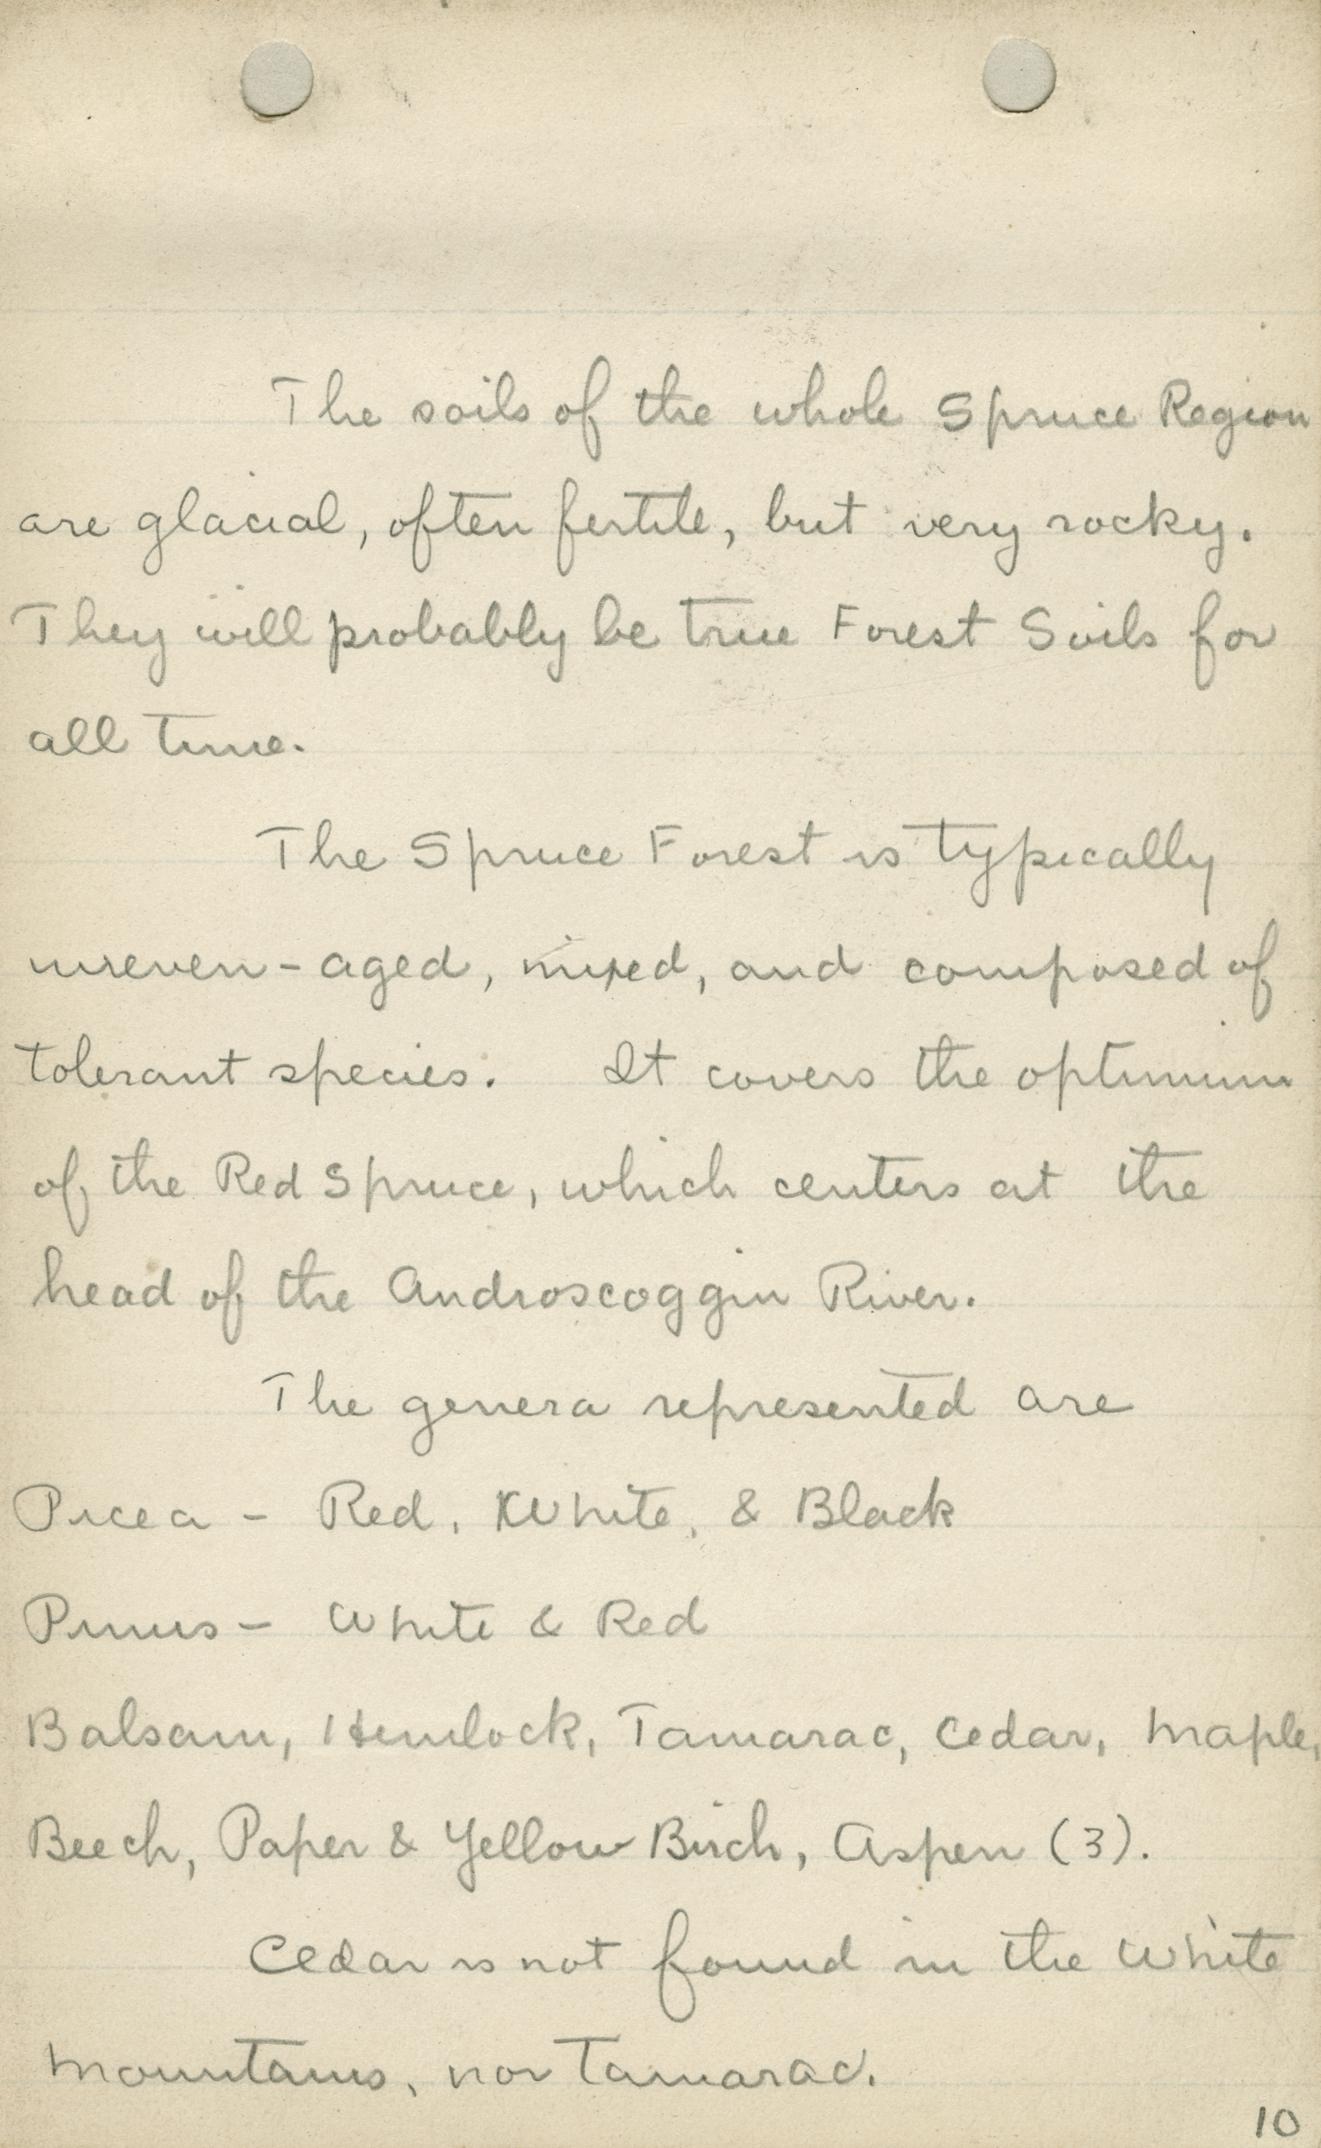 The soils of the whole Spruce Region
are glacial, often fertile, but very rocky.
They will probably be true Forest Soils for
all time.
The Spruce Forest is typically
uneven-aged, mixed, and composed of
tolerant species. It covers the optimum
of the Red Spruce, which centers at the
head of the Androscoggin River.
The genera represented are
Picea - Red, White, & Black
Pinus - White & Red
Balsam, Hemlock, Tamarac, Cedar, Maple,
Beech, Paper & Yellow Birch, Aspen (3).
Cedar is not found in the White
Mountains, nor Tamarac.
10